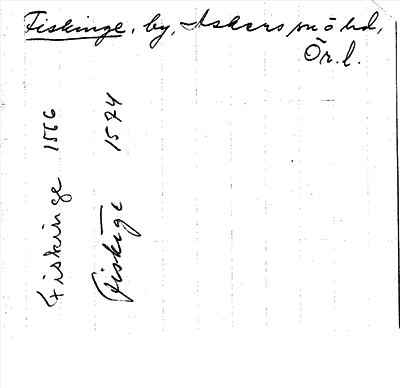 Fiskinge, by, Askers sn o hd,
Ör. l.
Fiskinge 1566
Fiskīge 1574